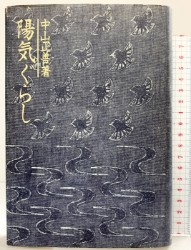 中山正善著
陽気ぐらし